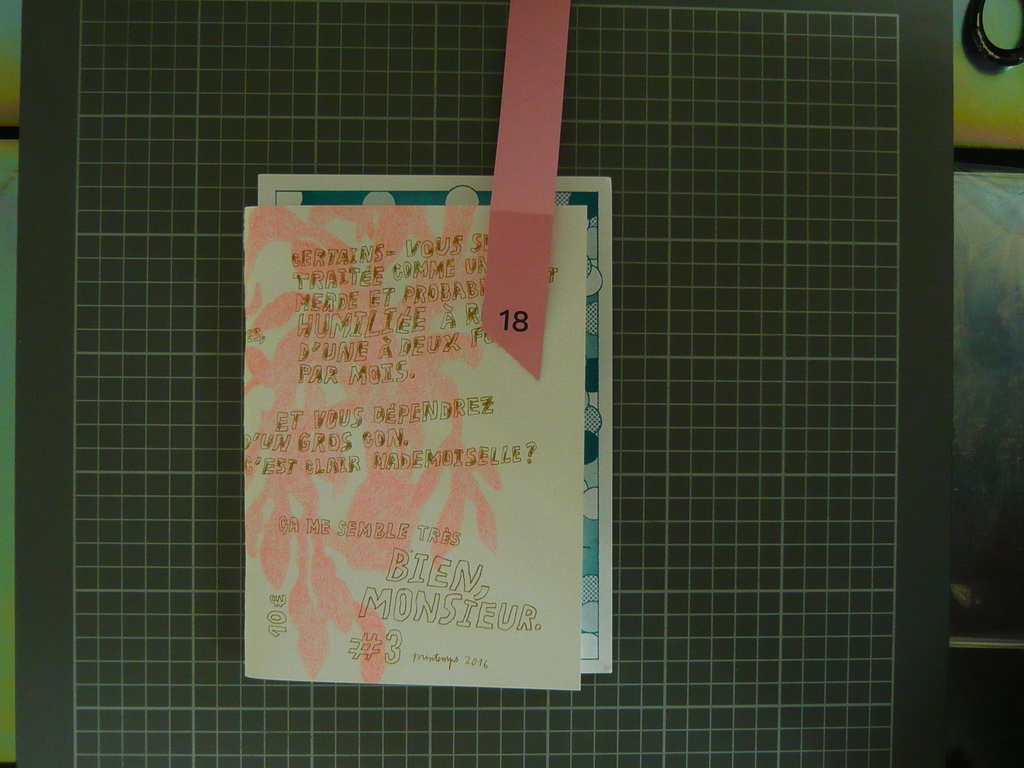 CERTAINS- VOUS
TRAITÉE COMME
MERDE ET
HUMILIÉE À
D'UNE À DEUX
PAR MOIS.
ET VOUS DÉPENDREZ
D'UN GROS CON.
C'EST CLAIR MADEMOISELLE?
ÇA ME SEMBLE TRÈS
BIEN,
MONSIEUR.
10€
#3 printemps 2016
18